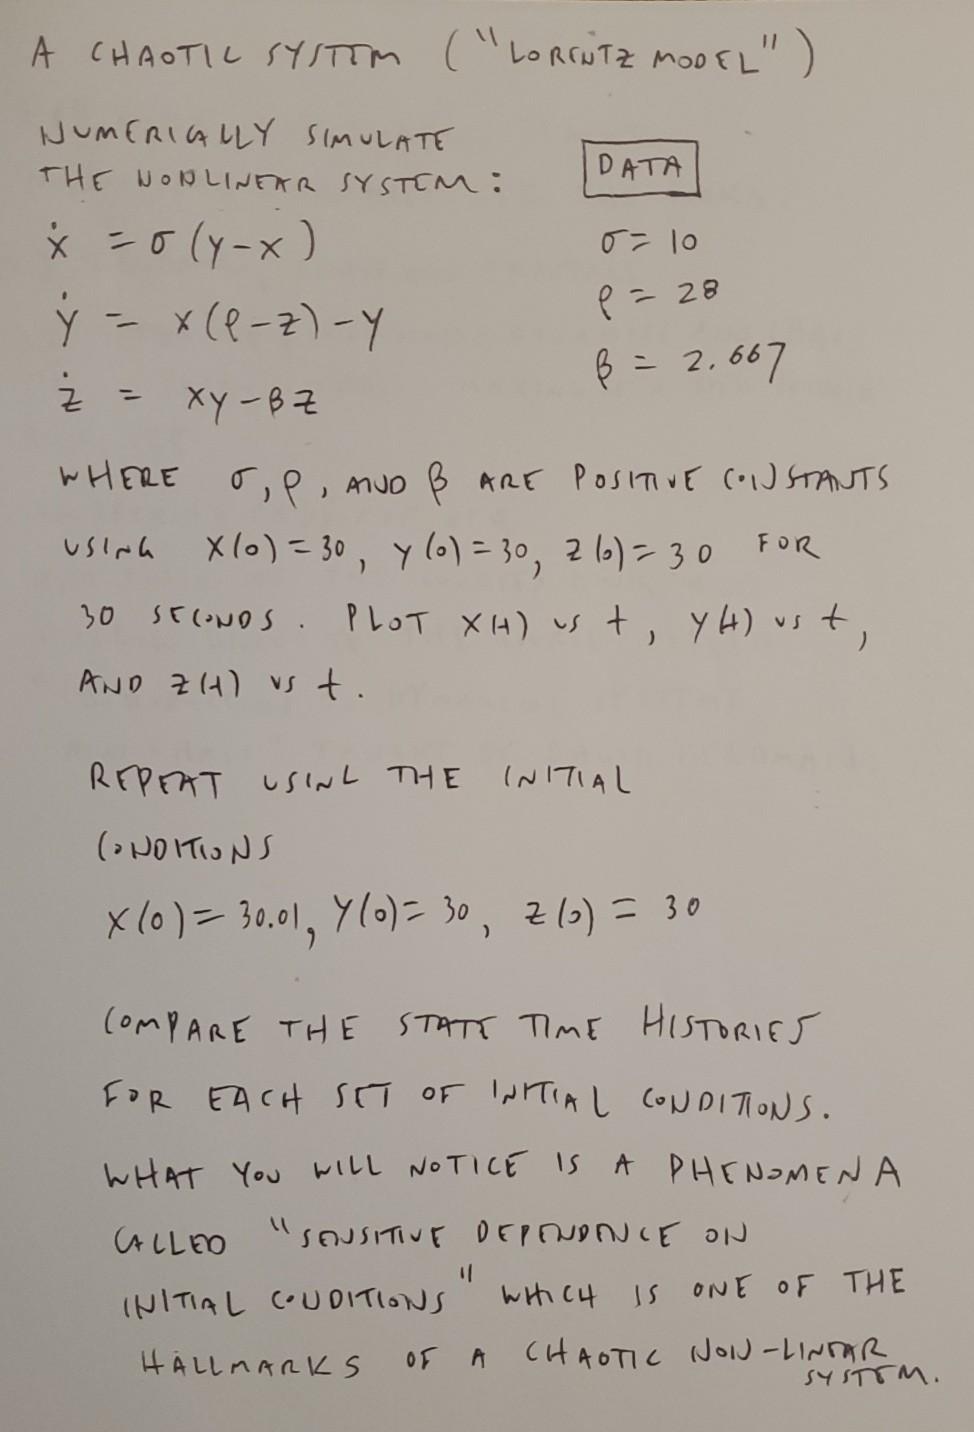 A CHAOTIC SYSTEM ("LORENTZ MODEL")
NUMERICALLY SIMULATE
THE NONLINEAR SYSTEM:
DATA
ẋ = σ(y-x)
σ = 10
ẏ = x(ρ-z)-y
ρ = 28
ż = xy-βz
β = 2.667
WHERE σ, ρ, AND β ARE POSITIVE CONSTANTS
USING X(0) = 30, y(0) = 30, z(0) = 30 FOR
30 SECONDS. PLOT X(t) vs t, y(t) vs t,
AND z(t) vs t.
REPEAT USING THE INITIAL
CONDITIONS
X(0) = 30.01, Y(0) = 30, z(0) = 30
COMPARE THE STATE TIME HISTORIES
FOR EACH SET OF INITIAL CONDITIONS.
WHAT YOU WILL NOTICE IS A PHENOMENA
CALLED "SENSITIVE DEPENDENCE ON
INITIAL CONDITIONS" WHICH IS ONE OF THE
HALLMARKS OF A CHAOTIC NON-LINEAR
SYSTEM.